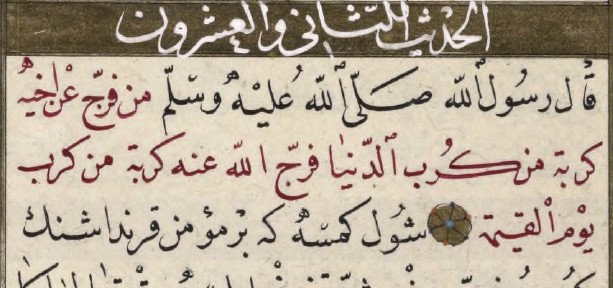 الحديث الثاني والعشرون
قال رسول الله صلى الله عليه وسلم من فرج عن اخيه
كربة من كرب الدنيا فرج الله عنه كربة من كرب
يوم القيمة شول كمسه كه بر مؤمن قرنداشنك